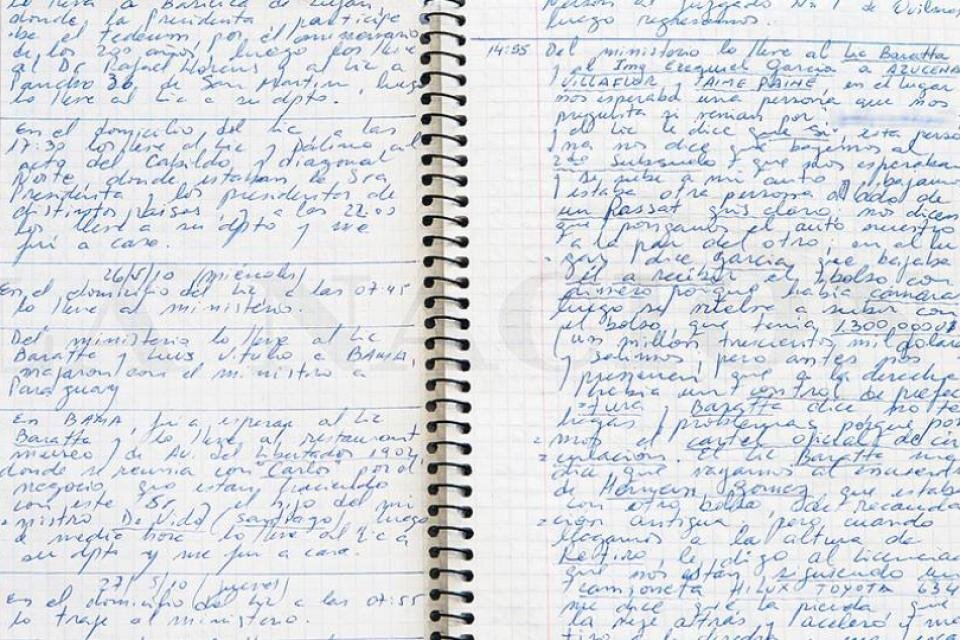 lo llevé a Basílica de Luján
donde la Presidenta, participe
de los 200 años, luego los llevé
al Dr Rafael Llorens y al Lic a
Pancho 36, de San Martín, luego
lo llevé al Lic a su dpto.
En el domicilio, del Lic, a las
17:30 los llevé al Lic y
acto del Cabildo, y diagonal
Norte donde estaban la Sra
Presidenta y los presidentes de
distintos países, y a las 22:00
los llevé a su dpto y me
fui a casa.
26/5/10 (miércoles)
En el domicilio del Lic a las 07:45
lo llevé al ministerio.
Del ministerio lo llevé al Lic
Baratta y Luis Vitulo a BAMA,
viajaron con el ministro a
Paraguay
En BAMA, fui a esperar al Lic
Baratta y lo llevé al restaurant
museo, de Av. del Libertador 1902
donde se reunia con "Carlos" por el
negocio que estan haciendo
con este Sr y el hijo del mi
nistro De Vido (Santiago) luego
de media hora lo llevé al Lic a
su dpto y me fui a casa.
27/5/10 (jueves)
En el domicilio del Lic a las 07:55
lo traje al ministerio.
al Juzgado Nº 1 de Quilmes
luego regresamos.
14:55 Del ministerio lo llevé al Lic Baratta
y al Ing Ezequiel García a AZUCENA
VILLAFLOR y JAIME PAINE, en el lugar
nos esperaba una persona que nos
pregunta si venian por
y el Lic le dice que si, esta perso
na nos dice que bajemos al
2do Subsuelo y que nos esperaban
y se sube a mi auto y bajamos
y estaba otra persona al lado de
un Passat gris claro, nos dicen
que pongamos el auto nuestro
a la par del otro, en al lu
gar, y dice García, que bajaba
él a recibir el bolso con
dinero porque habia camaras
luego se vuelve a subir con
el bolso, que tenia 1.300.000
(un millón trescientos mil dolares
y salimos pero antes nos
previenen, que a la derecha
habia un control de prefec
tura y Baratta dice no te
hagas problemas, porque pone
mos el cartel oficial de cir
culación. El Lic Baratta me
dice que vayamos al encuentro
de Hernan Gomez que estaba
con otro bolso de recauda
cion antigua, pero cuando
llegamos a la altura de
Retiro, le digo al Licenciado
que nos estan siguiendo una
camioneta HILUX TOYOTA 634
me dice que, la pierda, que
la deje atras, y aceleré y me
tiro a la derecha